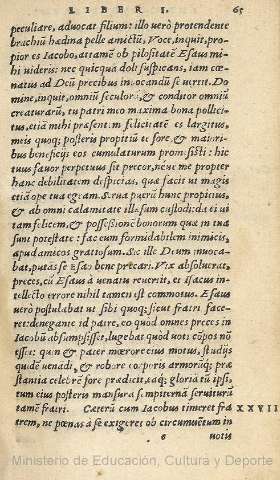 LIBER I. 65
peculiare, aduocat filium: illo uerò protendente
brachiũ hœdina pelle amictũ, Voce, inquit, pro-
pior es Iacobo, attamẽ ob pilositatẽ Esaus mi-
hi uideris: nec quicquā doli suspicans, iam cœ-
natus ad Deũ precibus inuocandũ se uertit. Do
mine, inquit, omniũ seculorũ, & conditor omniũ
creaturarũ, tu patri meo maxima bona pollici-
tus, etiā mihi præsentem felicitatẽ es largitus,
meis quoq; posteris propitiũ te fore, & maiori-
bus beneficijs eos cumulaturum promisisti: hic
tuus fauor perpetuus sit precor, neue me propter
hanc debilitatem despicias, quæ facit ut magis
etiā ope tua egeam. Serua puerũ hunc propicius,
& ab omni calamitate illæsum custodi: da ei ui
tam felicem, & possessionẽ bonorum quæ in tua
sunt potestate: fac eum formidabilem inimicis,
apud amicos gratiosum. Sic ille Deum inuoca-
bat, putās se Esao bene precari. Vix absoluerat,
preces, cũ Esaus à uenatu reuertit, et Isacus in-
tellecto errore nihil tamen est commotus. Esaus
uerò postulabat ut sibi quoq; sicut fratri face-
ret: denegante id patre, eo quòd omnes preces in
Iacobũ absumpsisset, lugebat quòd uoti cōpos nō
esset: quem & pater mœrore eius motus, studijs
quidẽ uenādi, & robore corporis armorũq; præ
stantia celebrẽ fore prædicit, eāq; gloriā tũ ipsi,
tum eius posteris mansurā sempiternā, seruiturũ
tamẽ fratri. Cæterũ cum Iacobus timeret fra XXVII
trem, ne pœnas à se exigeret ob circumuẽtum in
e uotis
Ministerio de Educación, Cultura y Deporte